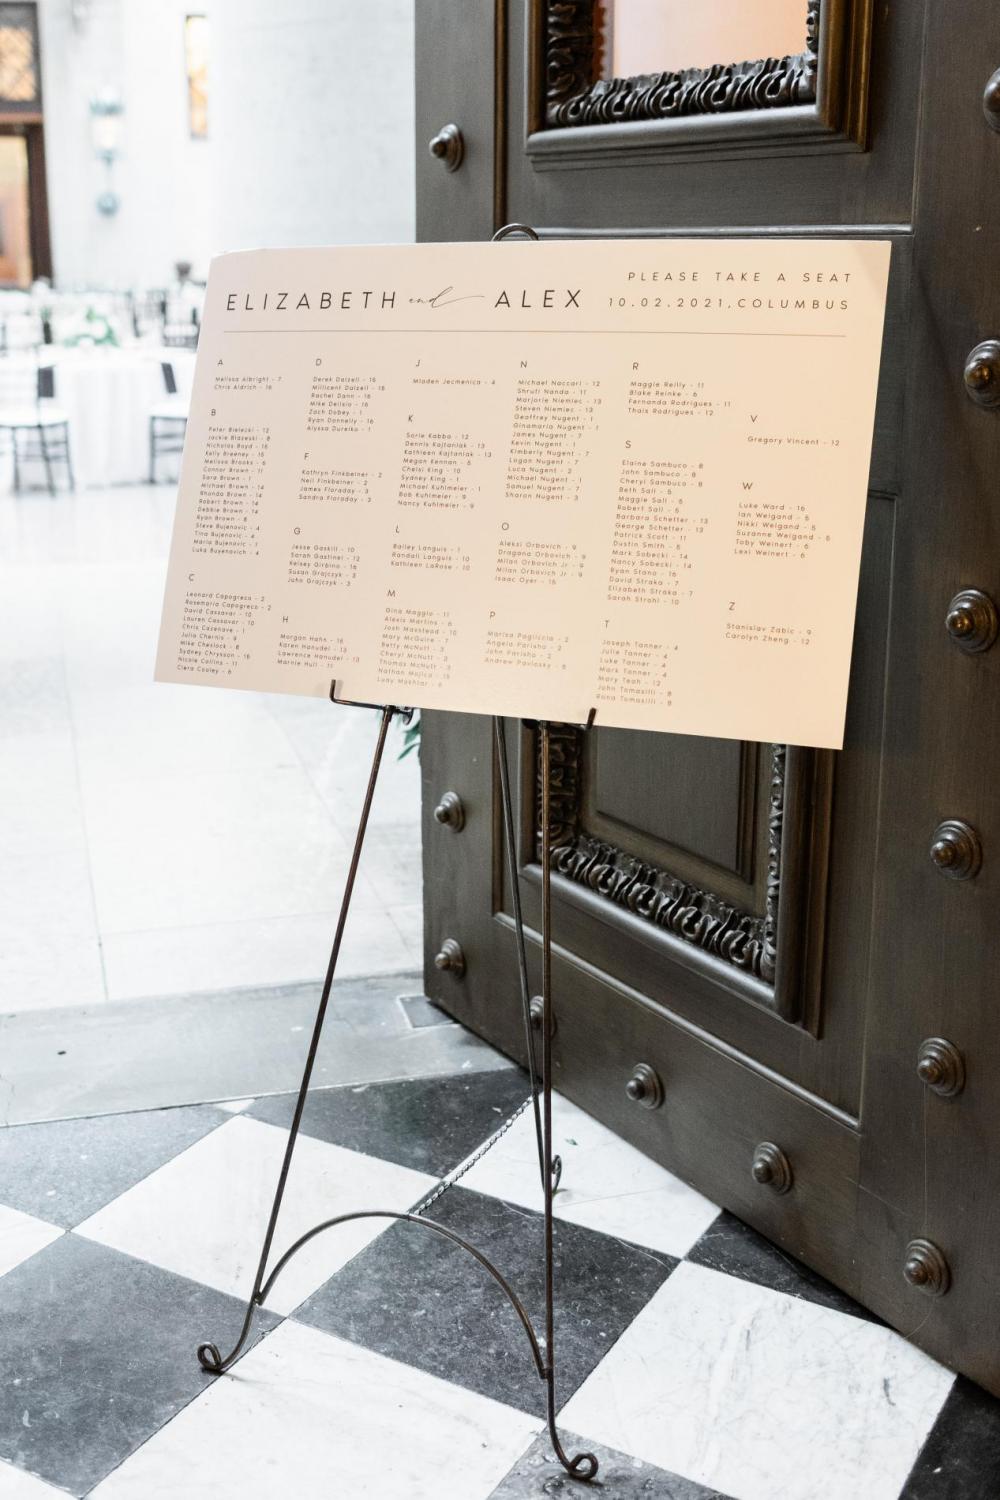 ELIZABETH and ALEX
PLEASE TAKE A SEAT
10.02.2021, COLUMBUS
A
Melissa Albright - 7
Chris Aldrich - 16
B
Peter Bielecki - 12
Jackie Blazeski - 8
Nicholas Boyd - 16
Kelly Breeney - 15
Melissa Brooks - 6
Connor Brown - 11
Sara Brown - 1
Michael Brown - 14
Rhonda Brown - 14
Robert Brown - 14
Debbie Brown - 14
Ryan Brown - 8
Steve Bujenovic - 4
Tina Bujenovic - 4
Maria Bujenovic - 1
Luka Buyenovich - 4
C
Leonard Capogreco - 2
Rosemaria Capogreco - 2
David Cassavar - 10
Lauren Cassavar - 10
Chris Cazenave - 1
Julia Chernis - 9
Mike Cheslock - 8
Sydney Chrysson - 16
Nicole Collins - 11
Ciera Cooley - 6
D
Derek Dalzell - 15
Millicent Dalzell - 15
Rachel Dann - 16
Mike Delisio - 16
Zach Dobey - 1
Ryan Donnelly - 16
Alyssa Dureiko - 1
F
Kathryn Finkbeiner - 2
Neil Finkbeiner - 2
James Floraday - 3
Sandra Floraday - 3
G
Jesse Gaskill - 10
Sarah Gastinel - 12
Kelsey Girbino - 16
Susan Grajczyk - 3
John Grajczyk - 3
H
Morgan Hahn - 16
Karen Hanudel - 13
Lawrence Hanudel - 13
Marnie Hull - 11
J
Mladen Jecmenica - 4
K
Sarie Kabba - 12
Dennis Kajtaniak - 13
Kathleen Kajtaniak - 13
Megan Kennan - 5
Chelsi King - 10
Sydney King - 1
Michael Kuhlmeier - 1
Bob Kuhlmeier - 9
Nancy Kuhlmeier - 9
L
Bailey Languis - 1
Randall Languis - 10
Kathleen LaRose - 10
M
Gina Maggio - 11
Alexis Martins - 6
Josh Maxstead - 10
Mary McGuire - 7
Betty McNutt - 3
Cheryl McNutt - 3
Thomas McNutt - 3
Nathan Mojica - 15
Luay Mokhtar - 6
N
Michael Naccari - 12
Shruti Nanda - 11
Marjorie Niemiec - 13
Steven Niemiec - 13
Geoffrey Nugent - 1
Ginamarie Nugent - 1
James Nugent - 7
Kevin Nugent - 1
Kimberly Nugent - 7
Logan Nugent - 7
Luca Nugent - 2
Michael Nugent - 1
Samuel Nugent - 7
Sharon Nugent - 3
O
Aleksi Orbovich - 9
Dragana Orbovich - 9
Milan Orbovich Jr - 9
Milan Orbovich Jr - 9
Isaac Oyer - 15
P
Marisa Pagliccia - 2
Angela Parisho - 2
John Parisho - 2
Andrew Pavlosky - 8
R
Maggie Reilly - 11
Blake Reinke - 6
Fernanda Rodrigues - 11
Thais Rodrigues - 12
S
Elaine Sambuco - 8
John Sambuco - 8
Cheryl Sambuco - 8
Beth Sall - 5
Maggie Sall - 5
Robert Sall - 5
Barbara Schetter - 13
George Schetter - 13
Patrick Scott - 11
Dustin Smith - 5
Mark Sobecki - 14
Nancy Sobecki - 14
Ryan Stano - 16
David Straka - 7
Elizabeth Straka - 7
Sarah Strohl - 10
T
Joseph Tanner - 4
Julie Tanner - 4
Luke Tanner - 4
Mark Tanner - 4
Mary Teah - 12
John Tomasilli - 8
Rana Tomasilli - 8
V
Gregory Vincent - 12
W
Luke Ward - 16
Ian Weigand - 5
Nikki Weigand - 5
Suzanne Weigand - 5
Toby Weinert - 6
Lexi Weinert - 6
Z
Stanislav Zabic - 9
Carolyn Zheng - 12